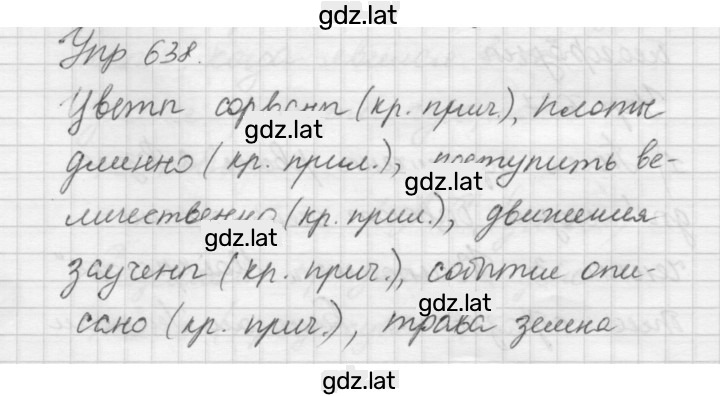 gdz.lat
Упр 638.
Цветы сорваны (кр. прич.), плоты
gdz.lat
длинно (кр. прил.), поступить ве-
gdz.lat
личественно (кр. прил.), движения
gdz.lat
заучены (кр. прич.), событие опи-
gdz.lat
сано (кр. прич.), трава зелена
gdz.lat